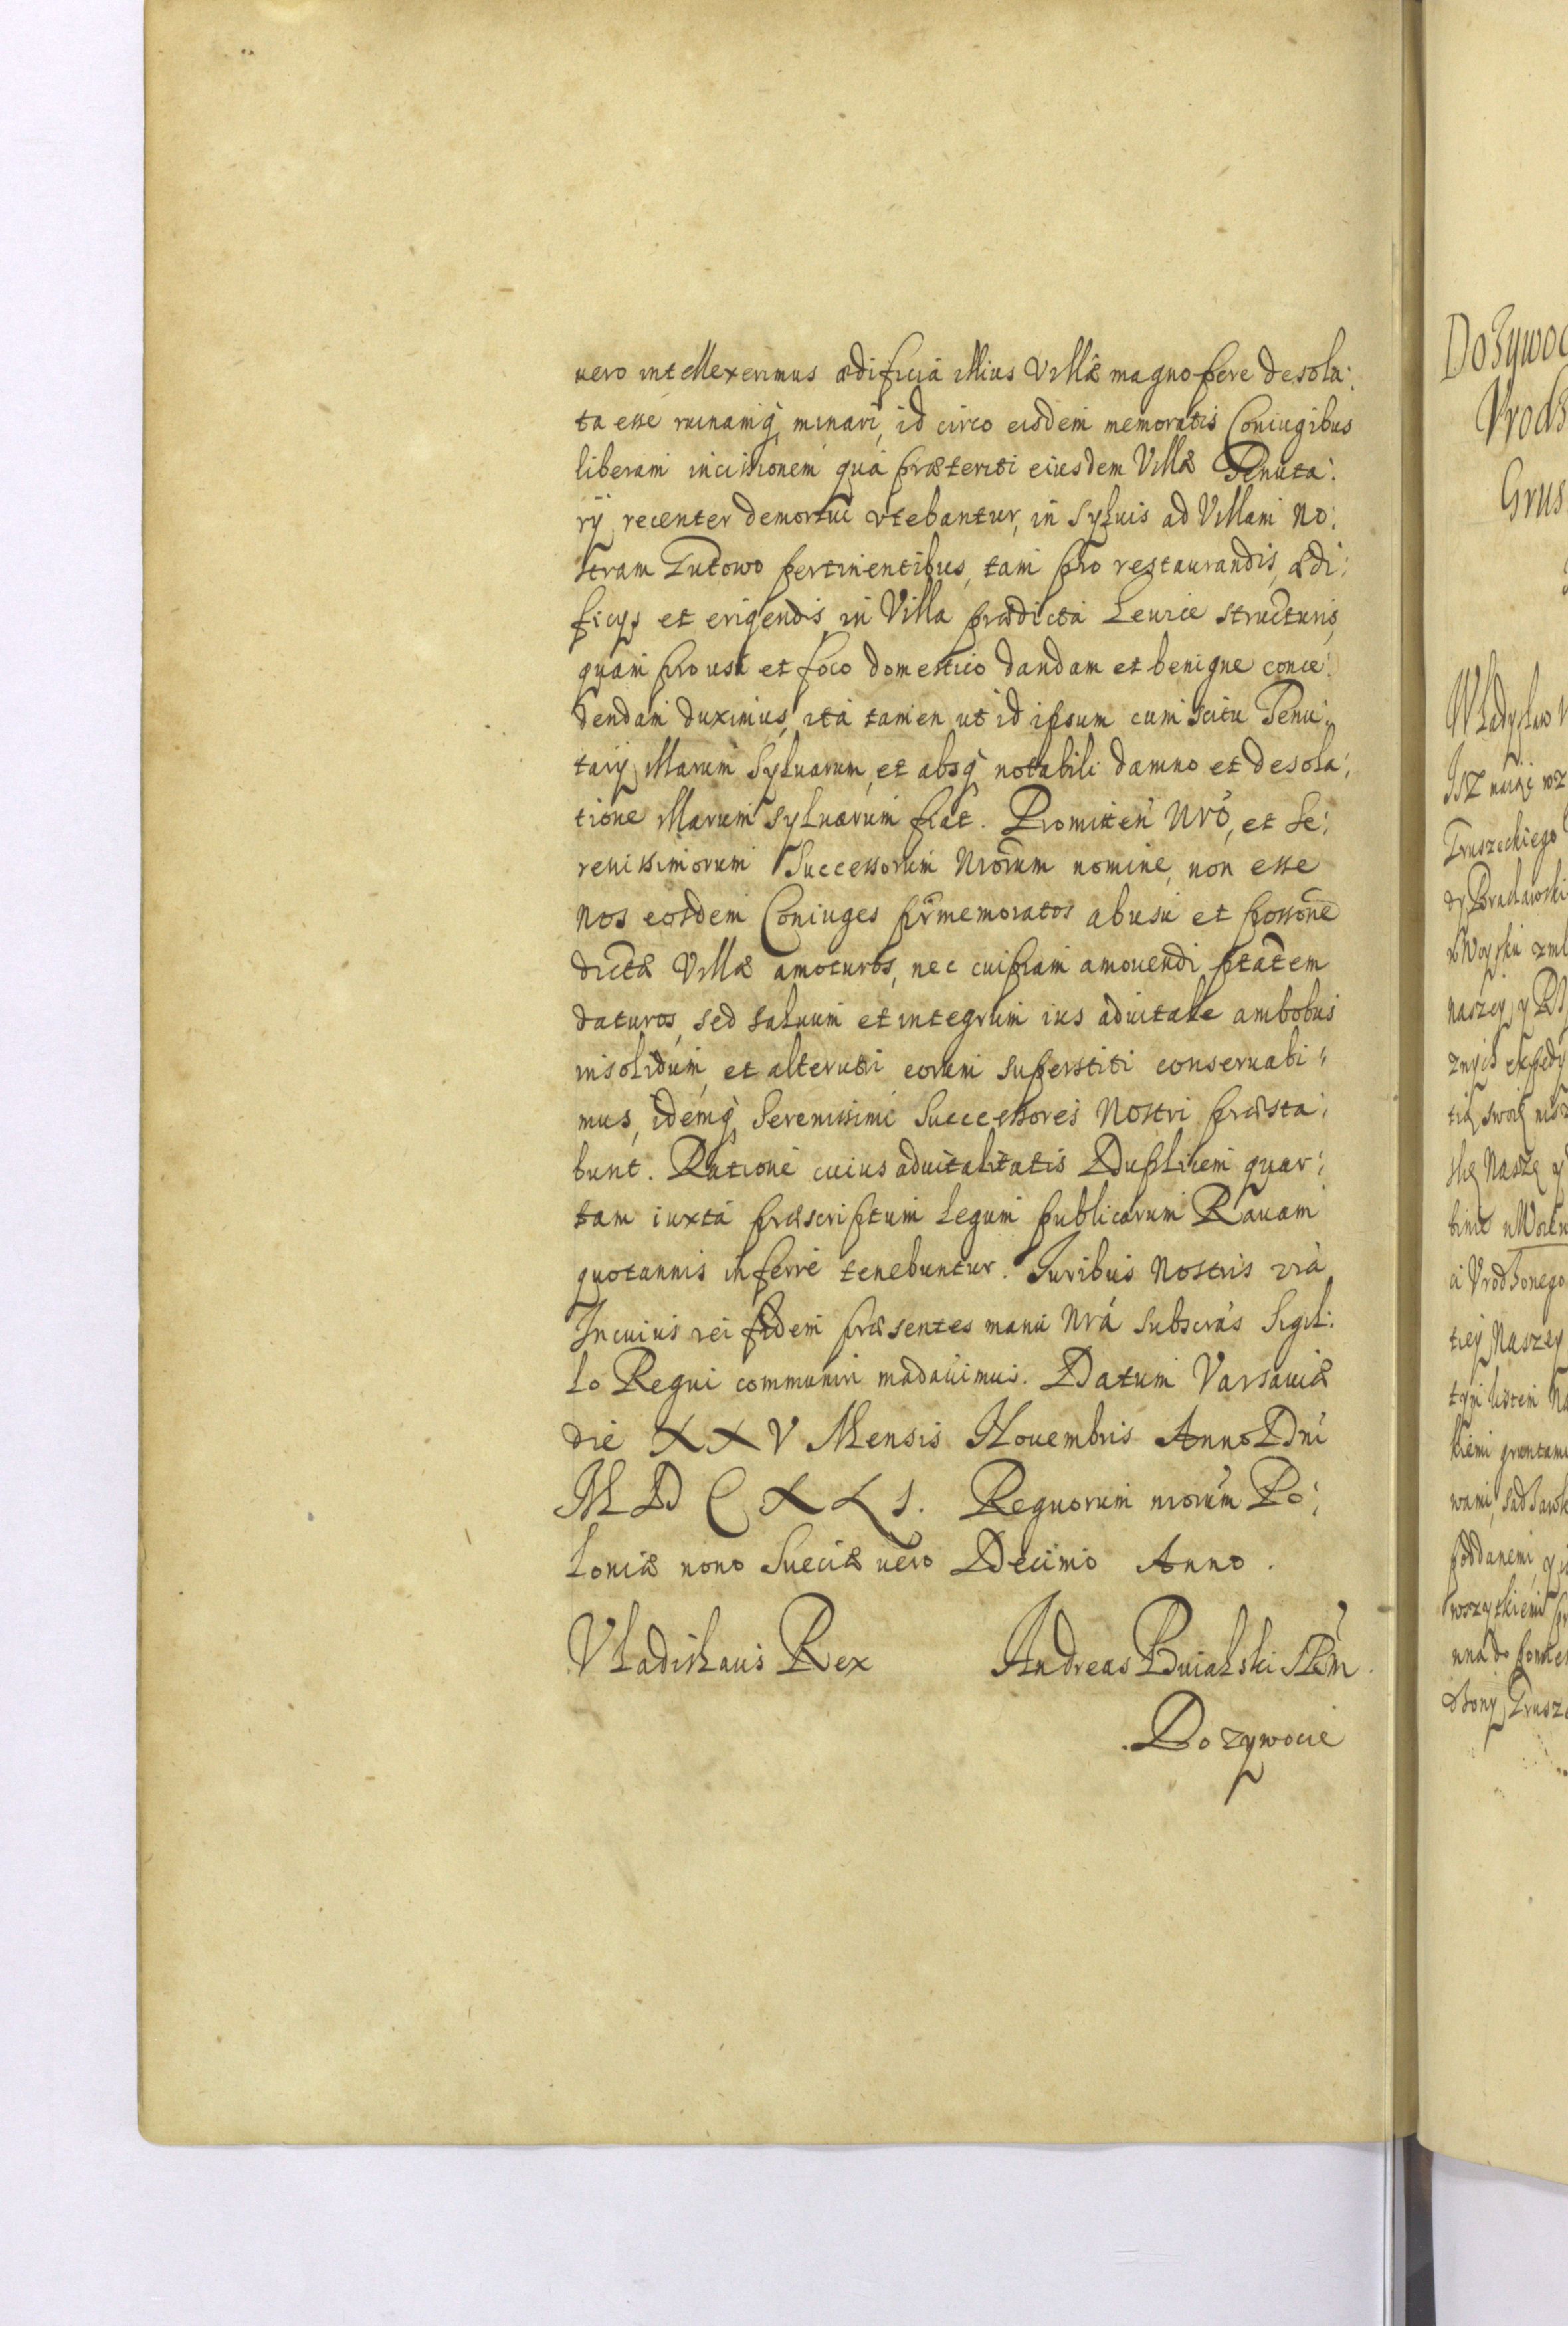 uero intellexerimus ædificia illius Villæ magnopere desola:
ta esse ruinamq̀ minari, id circo eisdem memoratis Coniugibus
liberam incisionem quá præteriti eiusdem Villæ Tenuta:
rÿ recenter demortui vtebantur, in Syluis ad Villam No:
stram Lutowo pertinentibus, tam pro restaurandis ædi:
ficys et erigendis in Villa prædicta Leurie structuris,
quam pro usu et foco domestico dandam et benigne conce:
dendam duximus, ita tamen ut id ipsum cum scitu Tenu:
tarÿ illarum Syluarum, et absq̀ notabili damno et desola:
tione illarum sylvarum fiat. Promitten Nrõ, et Se:
renissimorum Successorum Nrõrum nomine, non esse
Nos eosdem Coniuges prmemoratos ab usu et possõne
dictæ Villæ amoturos, nec cuipiam amouendi ptãtem
daturos, sed saluum et integrum ius aduitale ambobus
insolidum, et alterutri eorum superstiti conseruabi:
mus, idemq̀ Serenissimi Successores Nostri præsta:
bunt. Ratione cuius aduitalitatis Duplicem quar:
tam iuxta præscriptum Legum publicarum Rauam
quotannis inferre tenebuntur. Iuribus Nostris
In cuius rei fidem præsentes manu Nrá Subscrás Sigil:
lo Regni communiri mãdauimus. Datum Varsauiæ
die XXV Mensis Nouembris Anno Dni
MDCXLI. Regnorum nrorum Po:
loniæ nono Sueciæ uero Decimo Anno.
Vladislaus Rex Andreas
Dozywocie
Dozywoc
Vrodz
Grus
Władysław
Truszeckiego
naszey y
skę Naszę y
a Vrodzonego
tiey Naszey
tym listem Na
kiemi gruntami
poddanemi y
wszytkiemi